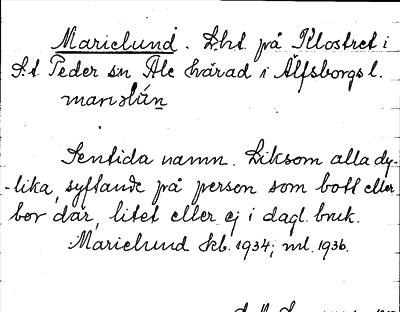 Marielund. Lht. på Klostret i
S:t Peder sn Ale härad i Älfsborgs l.
marielún
Sentida namn. Liksom alla dy-
-lika, syftande på person som bott eller
bor där, litet eller ej i dagl. bruk.
Marielund skb. 1934; ml. 1936.